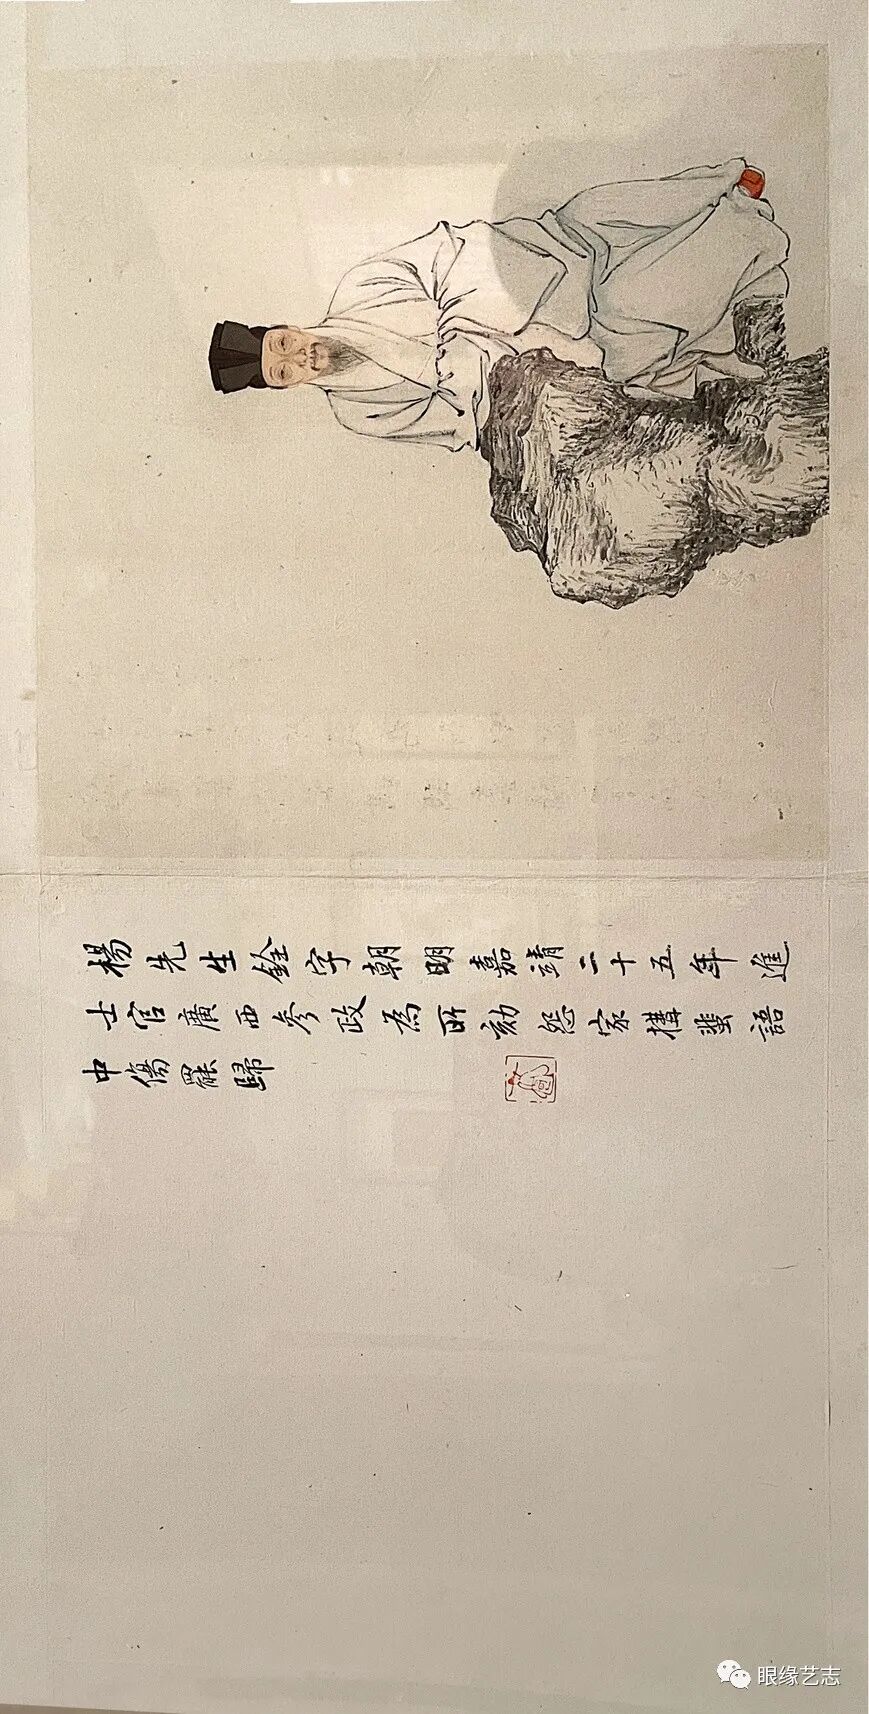 楊先生銓字朝明嘉靖二十五年進
士官廣西參政為所劾怨家構蜚語
中傷罷歸
眼缘艺志